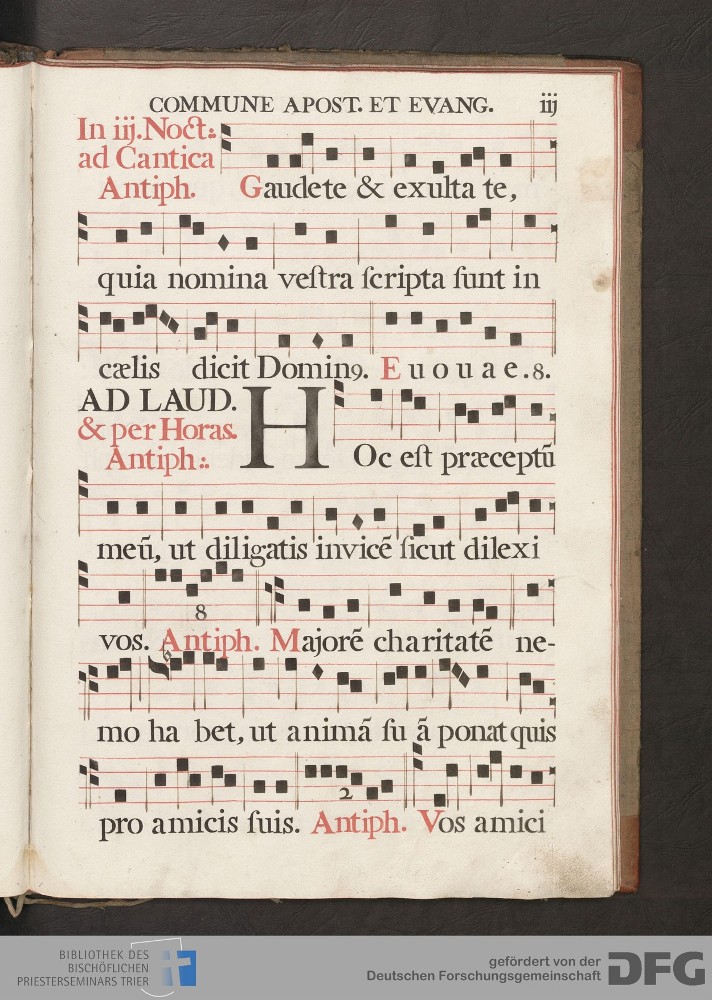 COMMUNE APOST. ET EVANG. iij
In iij. Noct:.
ad Cantica
Antiph. Gaudete & exulta te,
quia nomina veſtra ſcripta ſunt in
cælis dicit Domin9. E u o u a e . 8.
AD LAUD.
& per Horas.
Antiph:. HOc eſt præceptū
meū, ut diligatis invicē ſicut dilexi
8
vos. Antiph. Majorē charitatē ne-
mo ha bet, ut animā ſu ā ponat quis
2
pro amicis ſuis. Antiph. Vos amici
BIBLIOTHEK DES
BISCHÖFLICHEN
PRIESTERSEMINARS TRIER
gefördert von der
Deutschen Forschungsgemeinschaft DFG